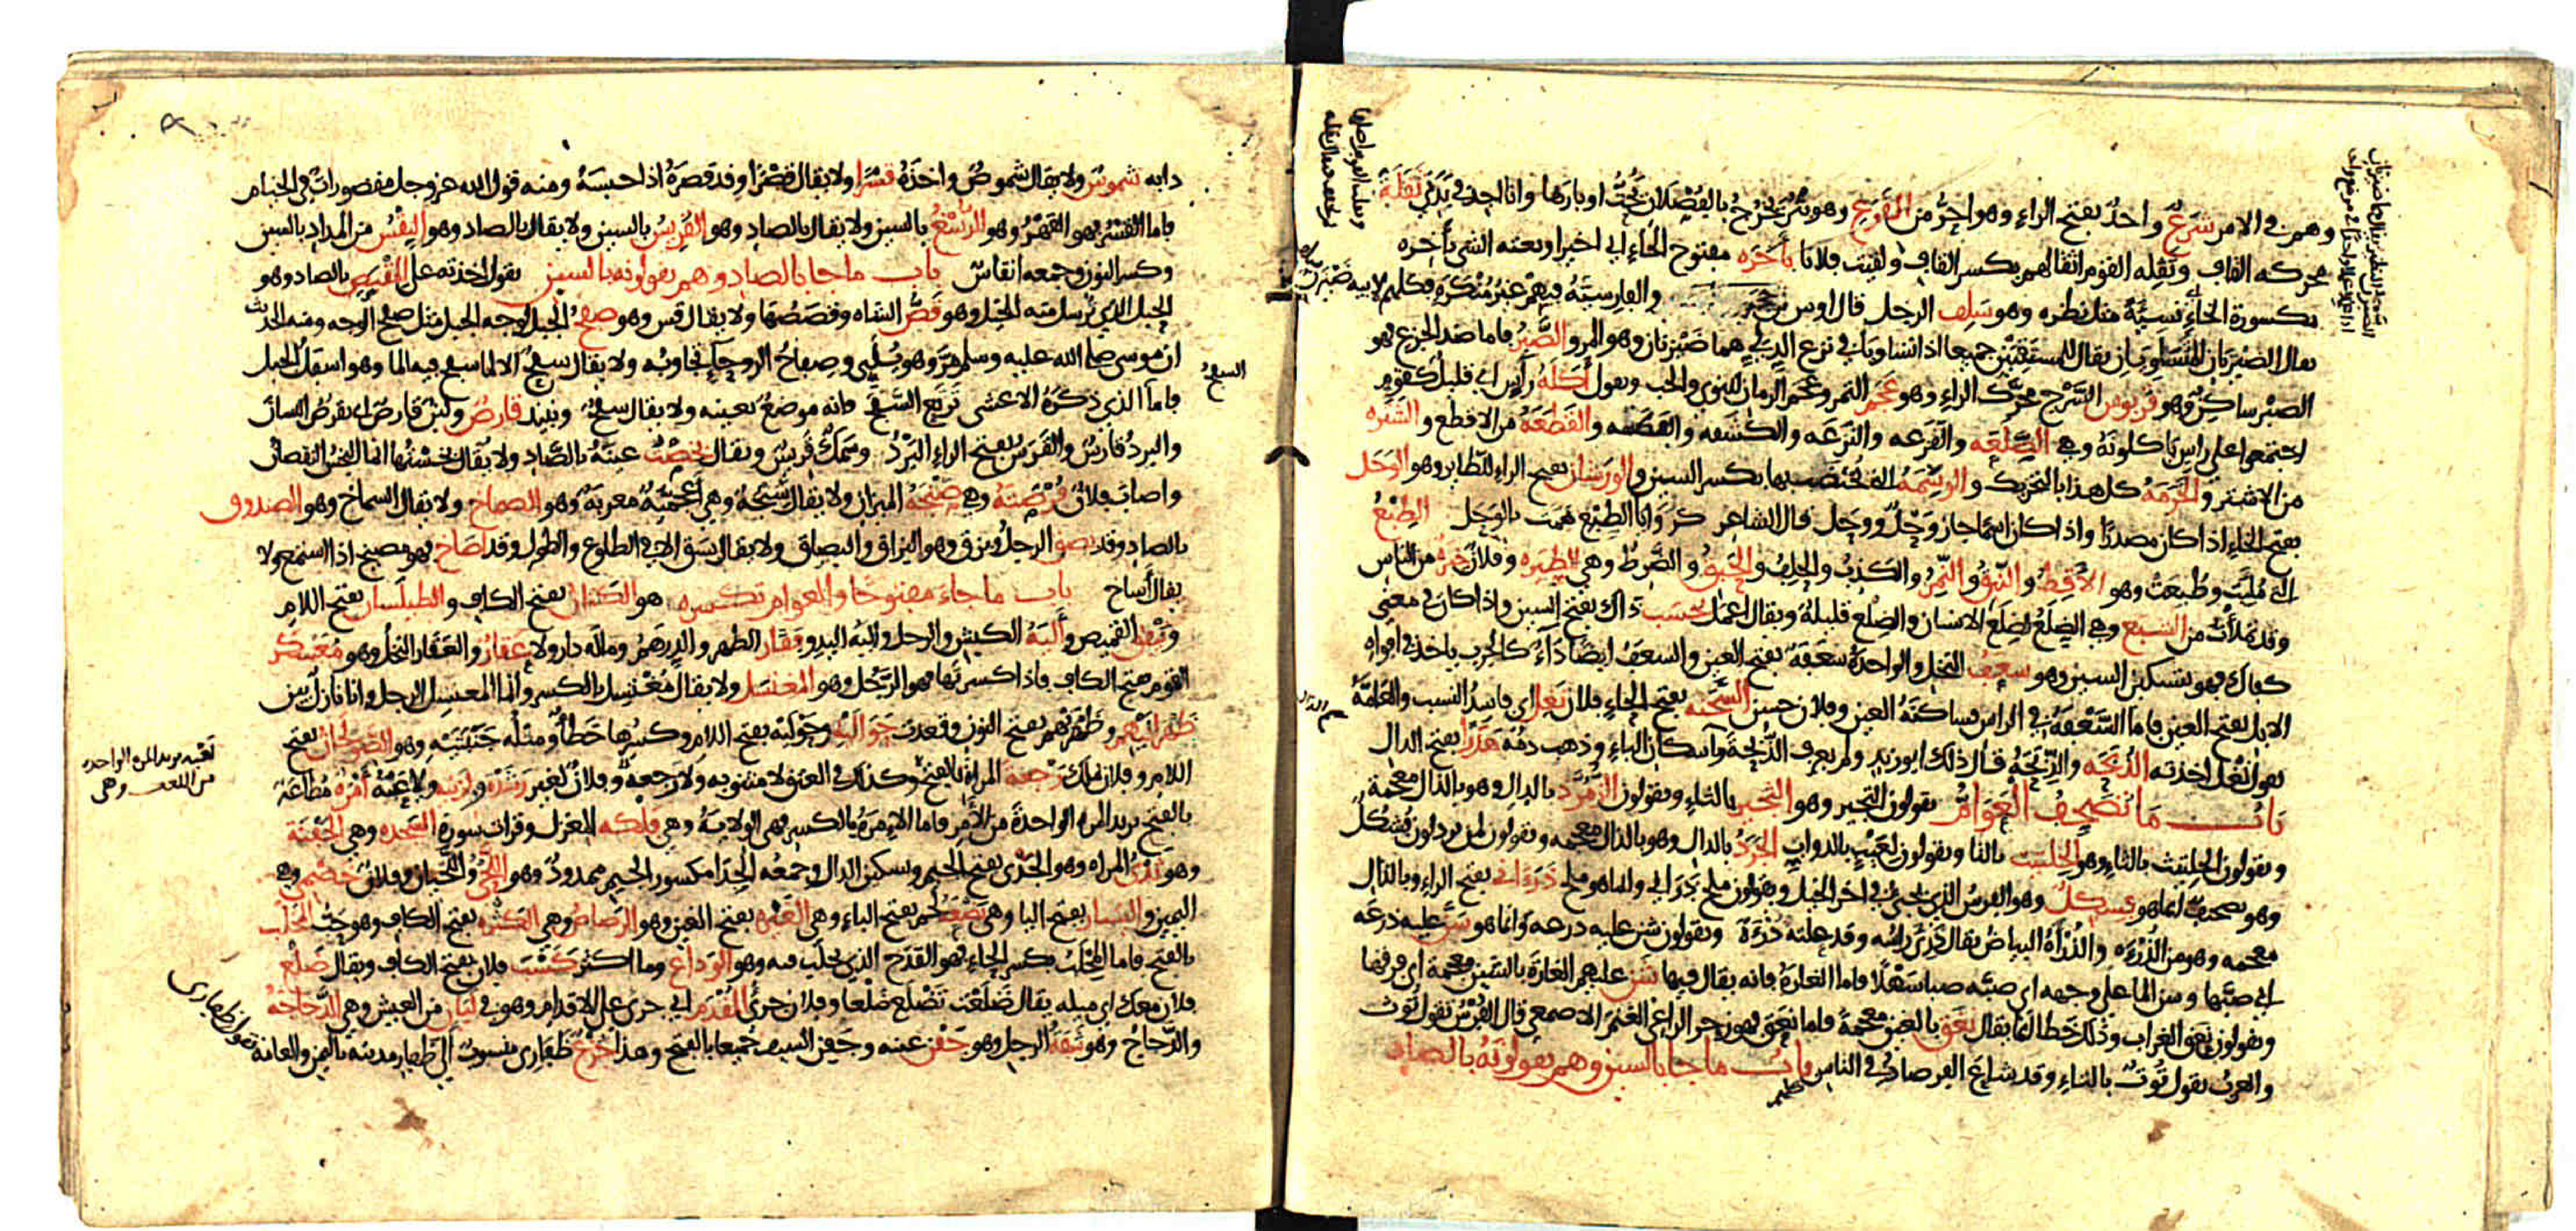 وهم في الامر شَرَعٌ واحدٌ بفتح الراء وهو احرُّ من القَرَع وهو بَثْرٌ يخرج بالفُصْلان يَحُتُّ اوبارها وانا اجد في بَدَني ثَقَلَةً
محركه القاف وثَقِلَه القوم اثقالهم بكسر القاف ولقيت فلانا بأَخَرَه مفتوح الخاء اي اخيرا وبعته الشي بأَخِرَه
مكسورة الخاء اي نسيّةً مثل نظره وهو سَلِف الرجل قال اوس بن حجر والفارسيّةُ فيهم غيرُ مُنْكَرَةٍ فكلهم لابيه ضَيْزَنٌ سلف
يقال الضيزنان المتساويان يقال للمستقيين جميعا اذا تساويا في نزع الدلو هما ضيزنان وهو المر والصَّبِرُ فاما ضد الجزع فهو
الصبْر ساكنٌ وهو قَرَبوس السَّرْج محرّك الراء وهو عَجَم التمر وعَجَم الرمان للنوى والحب ويقول أَكَلَةُ رأْسٍ اي قليل كقومٍ
اجتمعوا على راس ياكلونه وهي الصَّلَعَه والقَرَعه والنَزَعَه والكَشَفه والفَطَسه والقَطَعَةُ من الاقطع والشَتَره
من الاشتر والخَرَمَةُ كل هذا بالتحريك والوَسِمَةُ التي يُختضب بها بكسر السين والوَرَشان بفتح الراء للطاير وهو الوَحَل
بفتح الحاء اذا كان مصدرًا واذا كان اسمًا جاز وَحْلٌ ووَحَل قال الشاعر كرَوَايا الطِبْع همّت بالوَحَل الطِبْعُ
التي مُلِيَت وطُبِعت وهو الأَقِطُ والنَّبِقُ والنَّمِرُ والكَذِبُ والحَلِفُ والحَبِقُ والضَّرِطُ وهي الطِيَره وفلان خِيَرَةٌ من الناس
وقد تملأت من الشِبَع وهي الضِلَعُ لضِلَع الانسان والضِلْع قليلةٌ ويقال اعمل بحَسَب ذاك بفتح السين واذا كان في معنى
كفاك فهو بتسكين السين وهو سَعَفُ النخل والواحدةُ سَعَفَةٌ بفتح العين والسعَفُ ايضًا دَاءٌ كالجرب ياخذ في افواه
الابل بفتح العين فاما السَّعْفَةُ في الراس فساكنةُ العين وفلان حسن السَّحَنَه بفتح الحاء فلان نَغِل اي فاسدُ النسب والعامَّةُ
تقول نَغْل اخذته الذُبَحَه والذِّبَحَةُ قال ذلك ابو زيد ولم يعرف الذّبْحةَ باسكان الباء وذهب دمُه هَدَرًا بفتح الدال
بابُ مَا تُصَحِّفُ العَوَامُّ يقولون التجير وهو الثَّجير بالثاء ويقولون الزمرد بالدال وهو بالذال معجمة
ويقولون الحِلتيث بالثاء وهو الحِلتيت بالتا ويقولون لعَيْبٍ بالدواب الجَرَدُ بالدال وهو بالذال معجمه ويقولون لمن يرذلون فُسْكُلٌ
وهو تصحيفٌ انما هو فِسكِلٌ وهو الفرسُ الذي يجيء في اخر الخيل ويقولون ملح دَرَاني وانما هو ملح ذَرَءَاني بفتح الراء وبالذال
معجمه وهو من الذُرْءَةِ والذُرْأَةُ البياضُ يقال ذَرِئَ راسُه وقد علته ذُرْءَةٌ ويقولون شن عليه درعه وانما هو سَنَّ عليه درعَه
اي صبَّها وسن الما على وجهه اي صبَّه صبا سهلًا فاما الغارةُ فانه يقال فيها شَنَّ عليهم الغارةَ بالشين معجمةً اي فرقها
ويقولون نعق الغراب وذلك خطا انما يقال نَغَق بالغين معجمةً فاما نعق فهو زجر الراعي الغنمَ الاصمعي قال الفُرْسُ تقول تُوث
والعربُ تقول تُوتٌ بالتاء وقد شاع الفرصادُ في الناس بابُ ما جا بالسين وهم يقولونهُ بالصاد
دابه شموسٌ ولا يقال شموصٌ واخذَهُ قَسْرًا ولا يقال قصْرًا وقد قصرَهُ اذا حبسَهُ ومنه قول الله عز وجل مقصوراتٌ في الخيام
فاما القسْرُ فهو القهْرُ وهو الرُّسْغُ بالسين ولا يقال بالصاد وهو القَرِيسُ بالسين ولا يقال بالصاد وهو النِقْسُ من المداد بالسين
وكسر النون وجمعه انقاسٌ باب ما جا بالصاد وهم يقولونه بالسين تقول اخذته على المِقْبَص بالصاد وهو
الحبل الذي يُرسل منه الخيل وهو قَصُّ الشاه وقَصَصُها ولا يقال قس وهو صفحُ الجبل لوجه الجبل مثل صفح الوجه ومنه الحديثُ
ان موسى صلى الله عليه وسلم مَرَّ وهو يُلَبي وصِفاحُ الروحاءِ تجاوبُه ولا يقال سفحٌ الا لما سفح فيه الما وهو اسفل الجبل
فاما الذي ذكرَهُ الاعشى تَرْتَعِ السَّفْحَ فانه موضعٌ بعينه ولا يقال سفحٌ ونبيذ قارصٌ ولبنٌ قارصٌ اي يقرصُ اللسانَ
والبردُ قارسٌ والقَرَسُ بفتح الراء البَرْدُ وسَمَكٌ قَريسٌ ويقال بَخَصْتُ عينَهُ بالصَّاد ولا يقال بخستُها انما البخسُ النقصانُ
واصابَ فلانٌ فُرْصَتَهُ وهي صَنْجَةُ الميزان ولا يقال سَنْجَةٌ وهي اعجميّةٌ معربةٌ وهو الصماخ ولا يقال السماخ وهو الصندوق
بالصاد وقد بصق الرجل وبزق وهو البزاق والبصاق ولا يقال بسق الا في الطلوع والطول وقد اصاخَ فهو مصيخ اذا استمع ولا
يقال أساخ باب ما جاءَ مفتوحًا والعوام تكسره هو الكَتَّانُ بفتح الكاف والطيلَسان بفتح اللام
ونَيْفَق القميص وأَليَةُ الكبش والرجل والية اليد وفَقَار الظهر والدِرهَمُ وماله دار ولا عَقَارٌ والعَقَار النخلُ وهو مُعَسكَر
القوم بفتح الكاف فاذا كسرتَها فهو الرَّجُل وهو المغتسَل ولا يقال مُغْتسِل بالكسر وانما المغتسِل الرجل وانا نازلٌ بين
ظَهْرانَيْهم وظَهْرَيْهم بفتح النون وقعدت حَوَالَيْهِ وحَوْلَيْه بفتح اللام وكسرُها خَطأٌ ومثلُه جَنَبَتَيْهِ وهو الصَّوْلَجانُ بفتح
اللام وفلان يملك رَجْعةَ المراةِ بالفتح وكذلك في العنق لا مثنويه ولا رَجعه وفلانٌ لغير رَشْدَه ولزَنيه ولا عَيَّهٌ أَمْرَةٌ مُطَاعَةٌ
بالفتح يريد المره الواحدةَ من الأَمْر فاما الإِمرَةُ بالكسر فهي الولايةُ وهي فَلكه المغزل وقرات سورة السَّجده وهي الجَفنَة
وهو ثَدْيُ المراه وهو الجَدْي بفتح الجيم وتسكين الدال وجمعُه الجِدَا مكسور الجيم ممدودٌ وهو اللَّحْيُ واللَّحْيان وفلانٌ خَصْمي وهي
اليمين واليَسار بفتح اليا وهي بَضْعَةُ لحم بفتح الباء وهي الغَيْره بفتح الغين وهو الرَصاص وهي الكَثْره بفتح الكاف وهو حَبُّ المَحْلَب
بالفتح فاما المِحْلَبُ بكسر الحاء فهو القدَح الذي يُحلَب فيه وهو الوَداع وما اكثر كَسْبَ فلان بفتح الكاف ويقال ضَلْعُ
فلان معك اي ميله يقال ضَلَعْت تَضْلَع ضَلْعا وفلان جريُّ المُقْدَم اي جرى على الاقدام وهو في لَيَانٍ من العيش وهي الدَّجاجَةُ
والدَّجاجُ وهو ثِقَةُ الرجل وهو جَفْن عينه وجَفن السيف جميعا بالفتح وهذا جَزْعٌ ظَفَارِي منسوبٌ الى ظفار مدينة باليمن والعامة
تقول ظفاري
السفحُ